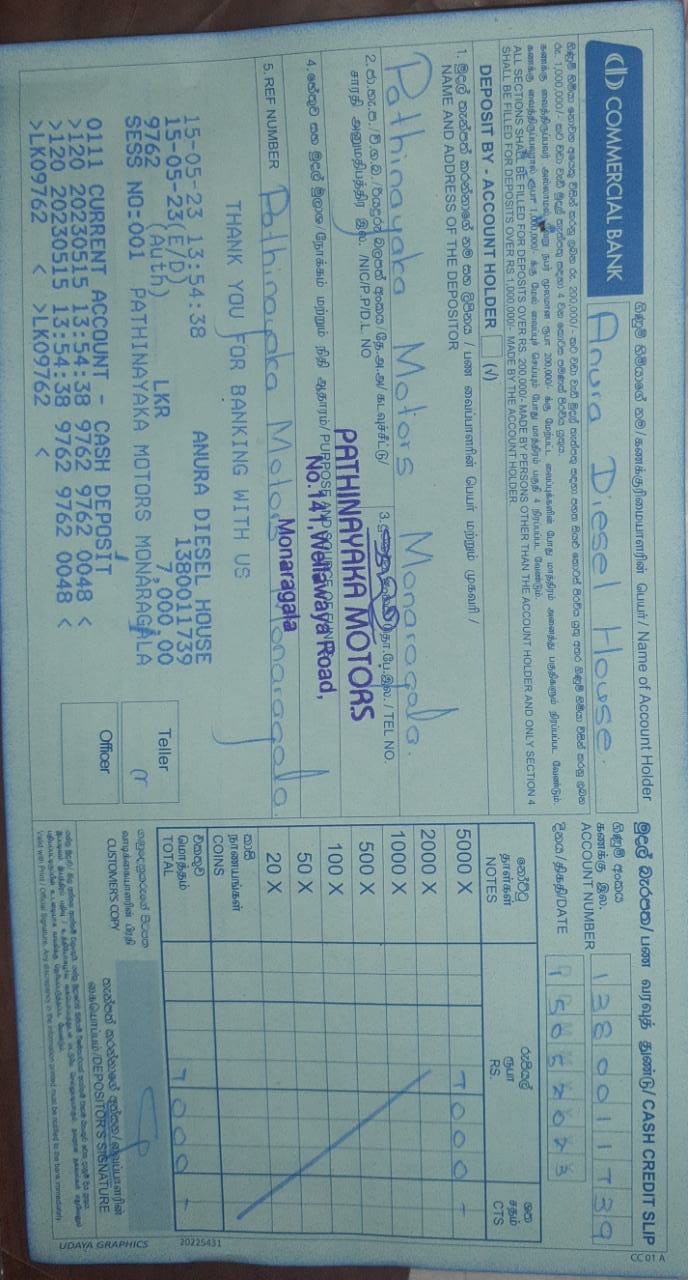 COMMERCIAL BANK
ගිණුම් හිමියාගේ නම / கணக்குரிமையாளரின் பெயர் / Name of Account Holder
Anura Diesel House.
ALL SECTIONS SHALL BE FILLED FOR DEPOSITS OVER RS. 200,000/- MADE BY PERSONS OTHER THAN THE ACCOUNT HOLDER AND ONLY SECTION 4
SHALL BE FILLED FOR DEPOSITS OVER RS. 1,000,000/- MADE BY THE ACCOUNT HOLDER
DEPOSIT BY - ACCOUNT HOLDER (√)
1. මුදල් තැන්පත් කරන්නාගේ නම සහ ලිපිනය / பண வைப்பாளரின் பெயர் மற்றும் முகவரி /
NAME AND ADDRESS OF THE DEPOSITOR
Pathinayaka Motors Monaragala.
/NIC/P.P/D.L. NO
/ TEL NO.
PATHINAYAKA MOTORS
No.141, Wellawaya Road,
Monaragala
4. / PURPOSE AND SOURCE OF FUNDS
5. REF NUMBER
Pathinayaka Motors Monaragala.
THANK YOU FOR BANKING WITH US
15-05-23 13:54:38 ANURA DIESEL HOUSE
15-05-23(E/D) 1380011739
9762 (Auth) LKR 7,000.00
SESS NO:001 PATHINAYAKA MOTORS MONARAGALA
0111 CURRENT ACCOUNT - CASH DEPOSIT
>120 20230515 13:54:38 9762 9762 0048 <
>120 20230515 13:54:38 9762 9762 0048 <
>LK09762 < >LK09762 <
Teller
Officer
මුදල් බැරපත / பண வரவுத் துண்டு / CASH CREDIT SLIP
ගිණුම් අංකය
கணக்கு இல.
ACCOUNT NUMBER 1380011739
දිනය / திகதி / DATE 15052023
නෝට්ටු
தாள்கள்
NOTES
රුපියල්
ரூபா
RS.
ශත
சதம்
CTS
5000 X 7000 -
2000 X
1000 X
500 X
100 X
50 X
20 X
කාසි
நாணயங்கள்
COINS
එකතුව
மொத்தம்
TOTAL 7000 -
CUSTOMER'S COPY
DEPOSITOR'S SIGNATURE
Valid with Print / Official Signature. Any discrepancy in the information printed must be notified to the bank immediately
UDAYA GRAPHICS
20225431
CC 01 A